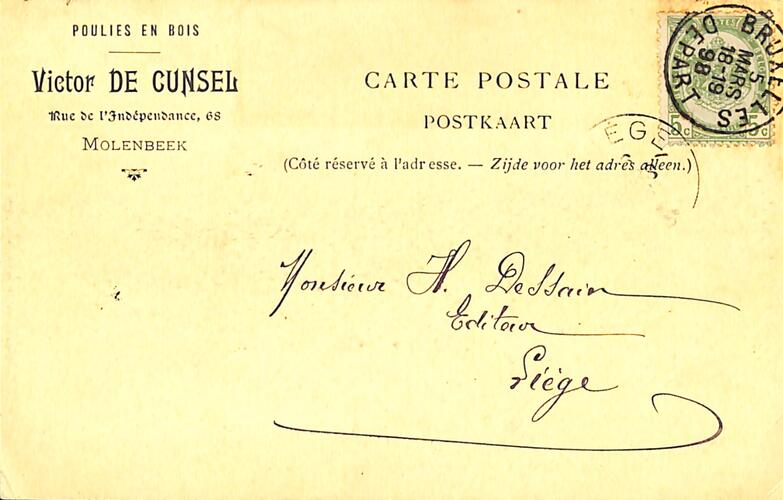 POULIES EN BOIS
Victor DE CUNSEL
Rue de l'Indépendance, 68
MOLENBEEK
CARTE POSTALE
POSTKAART
(Côté réservé à l'adresse. — Zijde voor het adres alleen.)
BRUXELLES
5
MARS
18-19
98
DEPART
5c 5c
EGE
Monsieur H. Dessain
Editeur
Liége